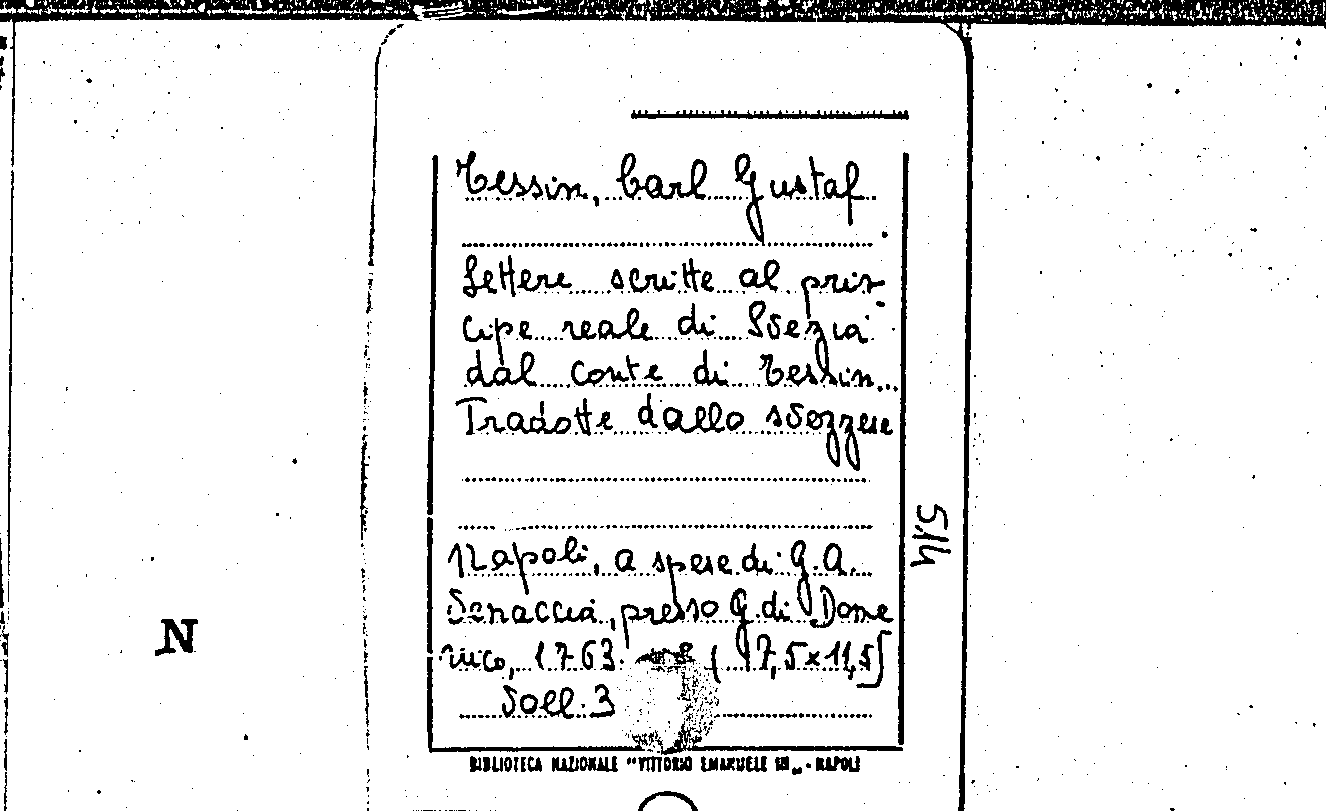 Tessin, Carl Gustaf
Lettere scritte al prin-
cipe reale di Svezia
dal conte di Tessin...
Tradotte dallo svezzese
Napoli, a spese di G.A.
Venaccia, presso G. di Dome
nico, 1763. (17,5x11,5)
Voll. 3
5.14
N
BIBLIOTECA NAZIONALE "VITTORIO EMANUELE III" - NAPOLI